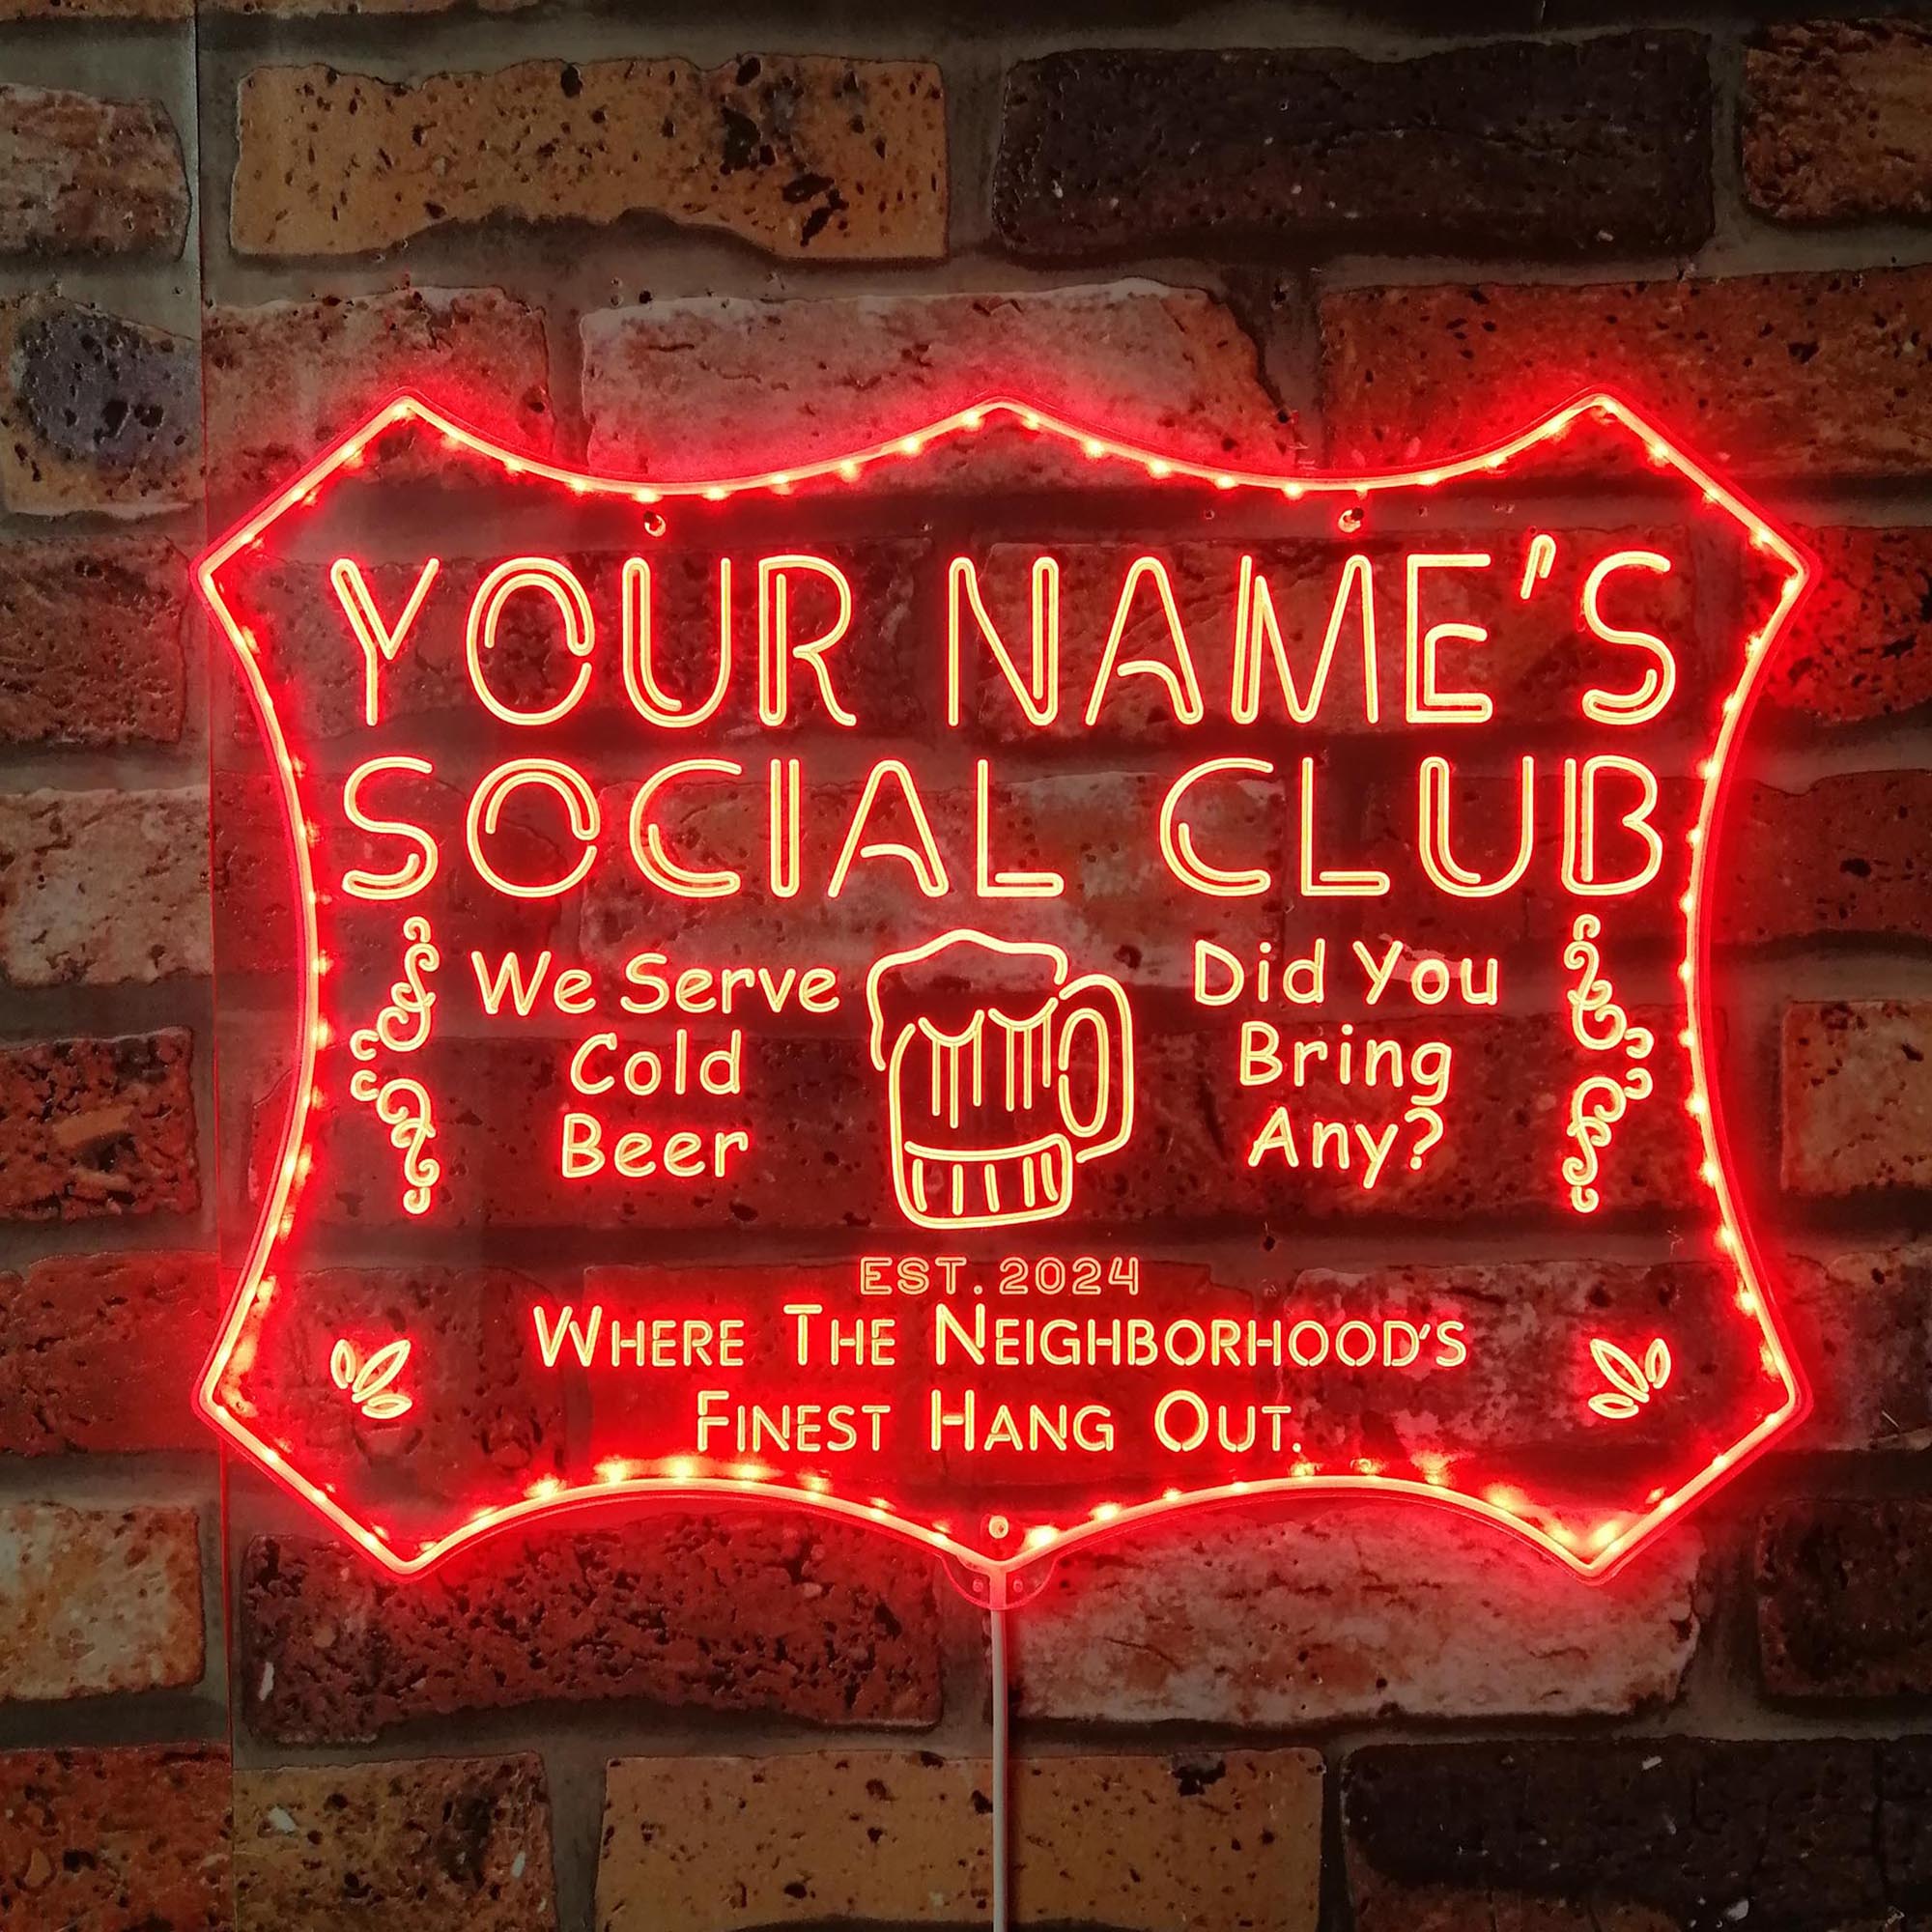 YOUR NAME'S
SOCIAL CLUB
We Serve
Cold
Beer
Did You
Bring
Any?
EST. 2024
WHERE THE NEIGHBORHOOD'S
FINEST HANG OUT.